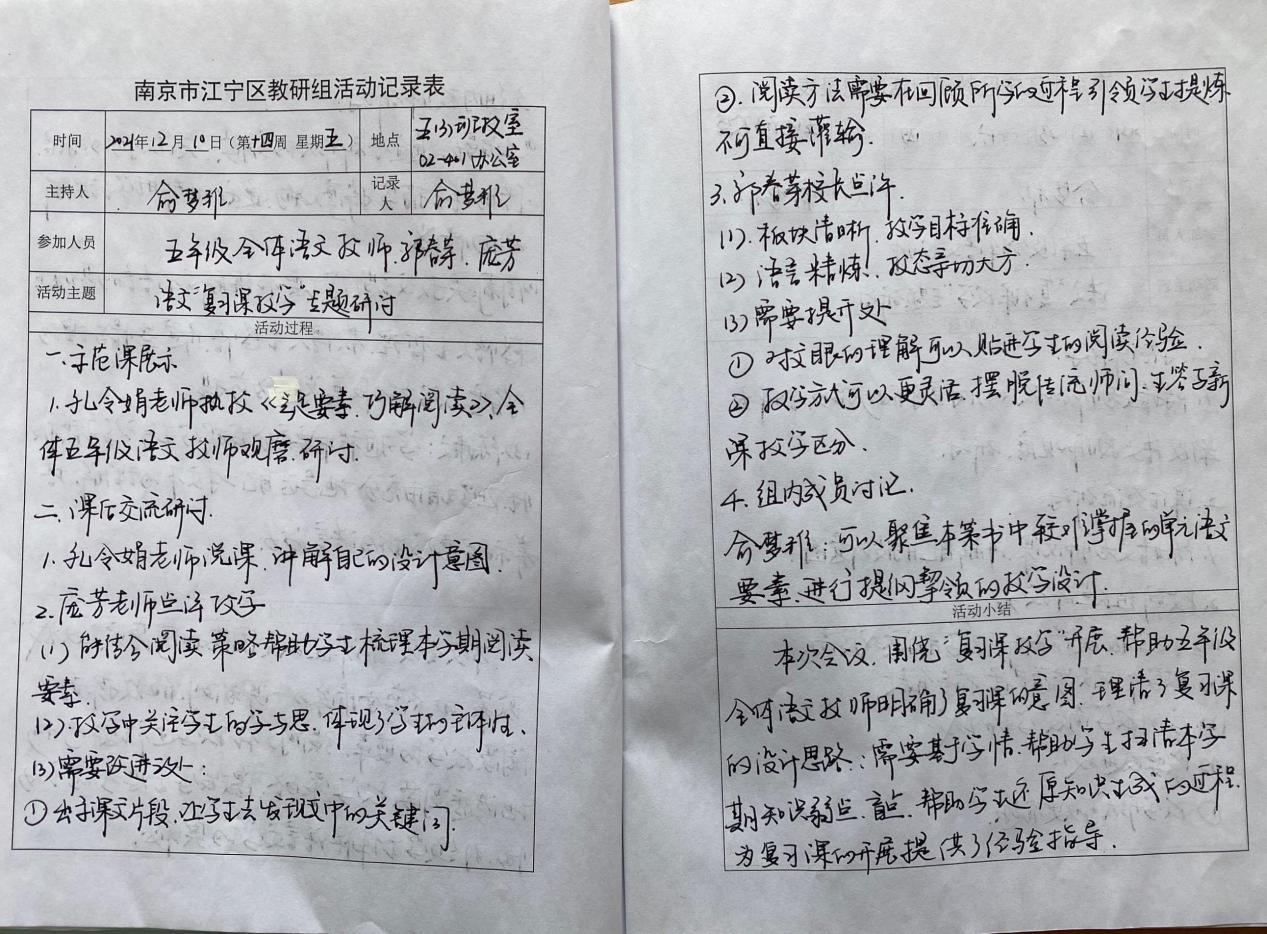 南京市江宁区教研组活动记录表
时间 2021年12月10日（第十四周 星期五） 地点 五(3)班教室
02-401办公室
主持人 俞梦雅 记录人 俞梦雅
参加人员 五年级全体语文教师、郭春芽、庞芳
活动主题 语文"复习课教学"主题研讨
活动过程
一、示范课展示
1、孔令娟老师执教《立足要素，巧解阅读》，全
体五年级语文教师观摩、研讨.
二、课后交流研讨.
1、孔令娟老师说课，讲解自己的设计意图.
2.庞芳老师点评教学
(1)能结合阅读策略帮助学生梳理本学期阅读
要素.
(2)教学中关注学生的学与思，体现了学生的主体性、
(3)需要改进之处：
①出示课文片段，让学生去发现文中的关键词.
②.阅读方法需要在回顾所学的过程引领学生提炼
不可直接灌输.
3.郭春芽校长点评.
(1).板块清晰，教学目标准确.
(2)语言精炼、教态亲切大方.
(3)需要提升处
①对文眼的理解可以贴近学生的阅读经验.
②教学方式可以更灵活，摆脱传统师问，生答，与新
课教学区分.
4.组内成员讨论.
俞梦雅：可以聚焦本策书中较难掌握的单元语文
要素，进行提纲挈领的教学设计.
活动小结
本次会议，围绕"复习课教学"开展，帮助五年级
全体语文教师明确了复习课的意图，理清了复习课
的设计思路：需要基于学情，帮助学生扫清本学
期知识弱点、盲点，帮助学生还原知识生成的过程.
为复习课的开展提供了经验指导.